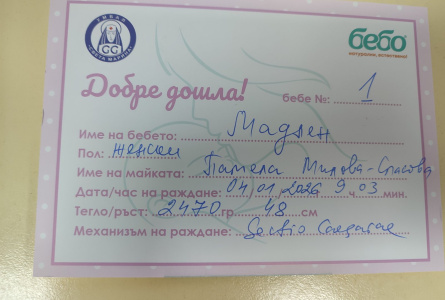 УМБАЛ
"СВЕТА МАРИНА"
бебо
натурално, естествено
Добре дошла!
бебе №: 1
Име на бебето: Мадлен
Пол: женски
Име на майката: Памела Милова-Спасова
Дата/час на раждане: 04 01 2026 9 ч. 03 мин.
Тегло/ръст: 2470 гр. 48 см
Механизъм на раждане: Sectio Caesarae